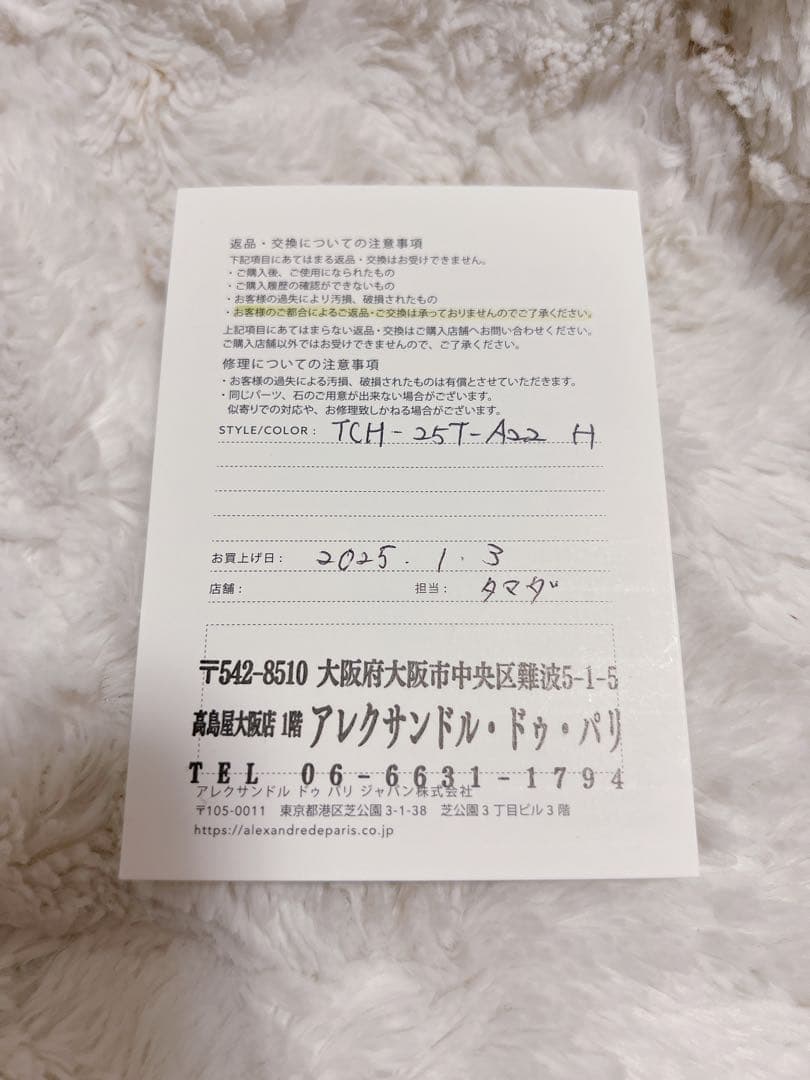 返品・交換についての注意事項
下記項目にあてはまる返品・交換はお受けできません。
・ご購入後、ご使用になられたもの
・ご購入履歴の確認ができないもの
・お客様の過失により汚損、破損されたもの
・お客様のご都合によるご返品・ご交換は承っておりませんのでご了承ください。
上記項目にあてはまらない返品・交換はご購入店舗へお問い合わせください。
ご購入店舗以外ではお受けできませんので、ご了承ください。
修理についての注意事項
・お客様の過失による汚損、破損されたものは有償とさせていただきます。
・同じパーツ、石のご用意が出来ない場合がございます。
似寄りでの対応や、お修理致しかねる場合がございます。
STYLE/COLOR : TCH-25T-A22 H
お買上げ日 : 2025.1.3
店舗 : 担当 : タマダ
〒542-8510 大阪府大阪市中央区難波5-1-5
髙島屋大阪店 1階 アレクサンドル・ドゥ・パリ
TEL 06-6631-1794
アレクサンドル ドゥ パリ ジャパン株式会社
〒105-0011 東京都港区芝公園 3-1-38 芝公園 3 丁目ビル 3 階
https://alexandredeparis.co.jp